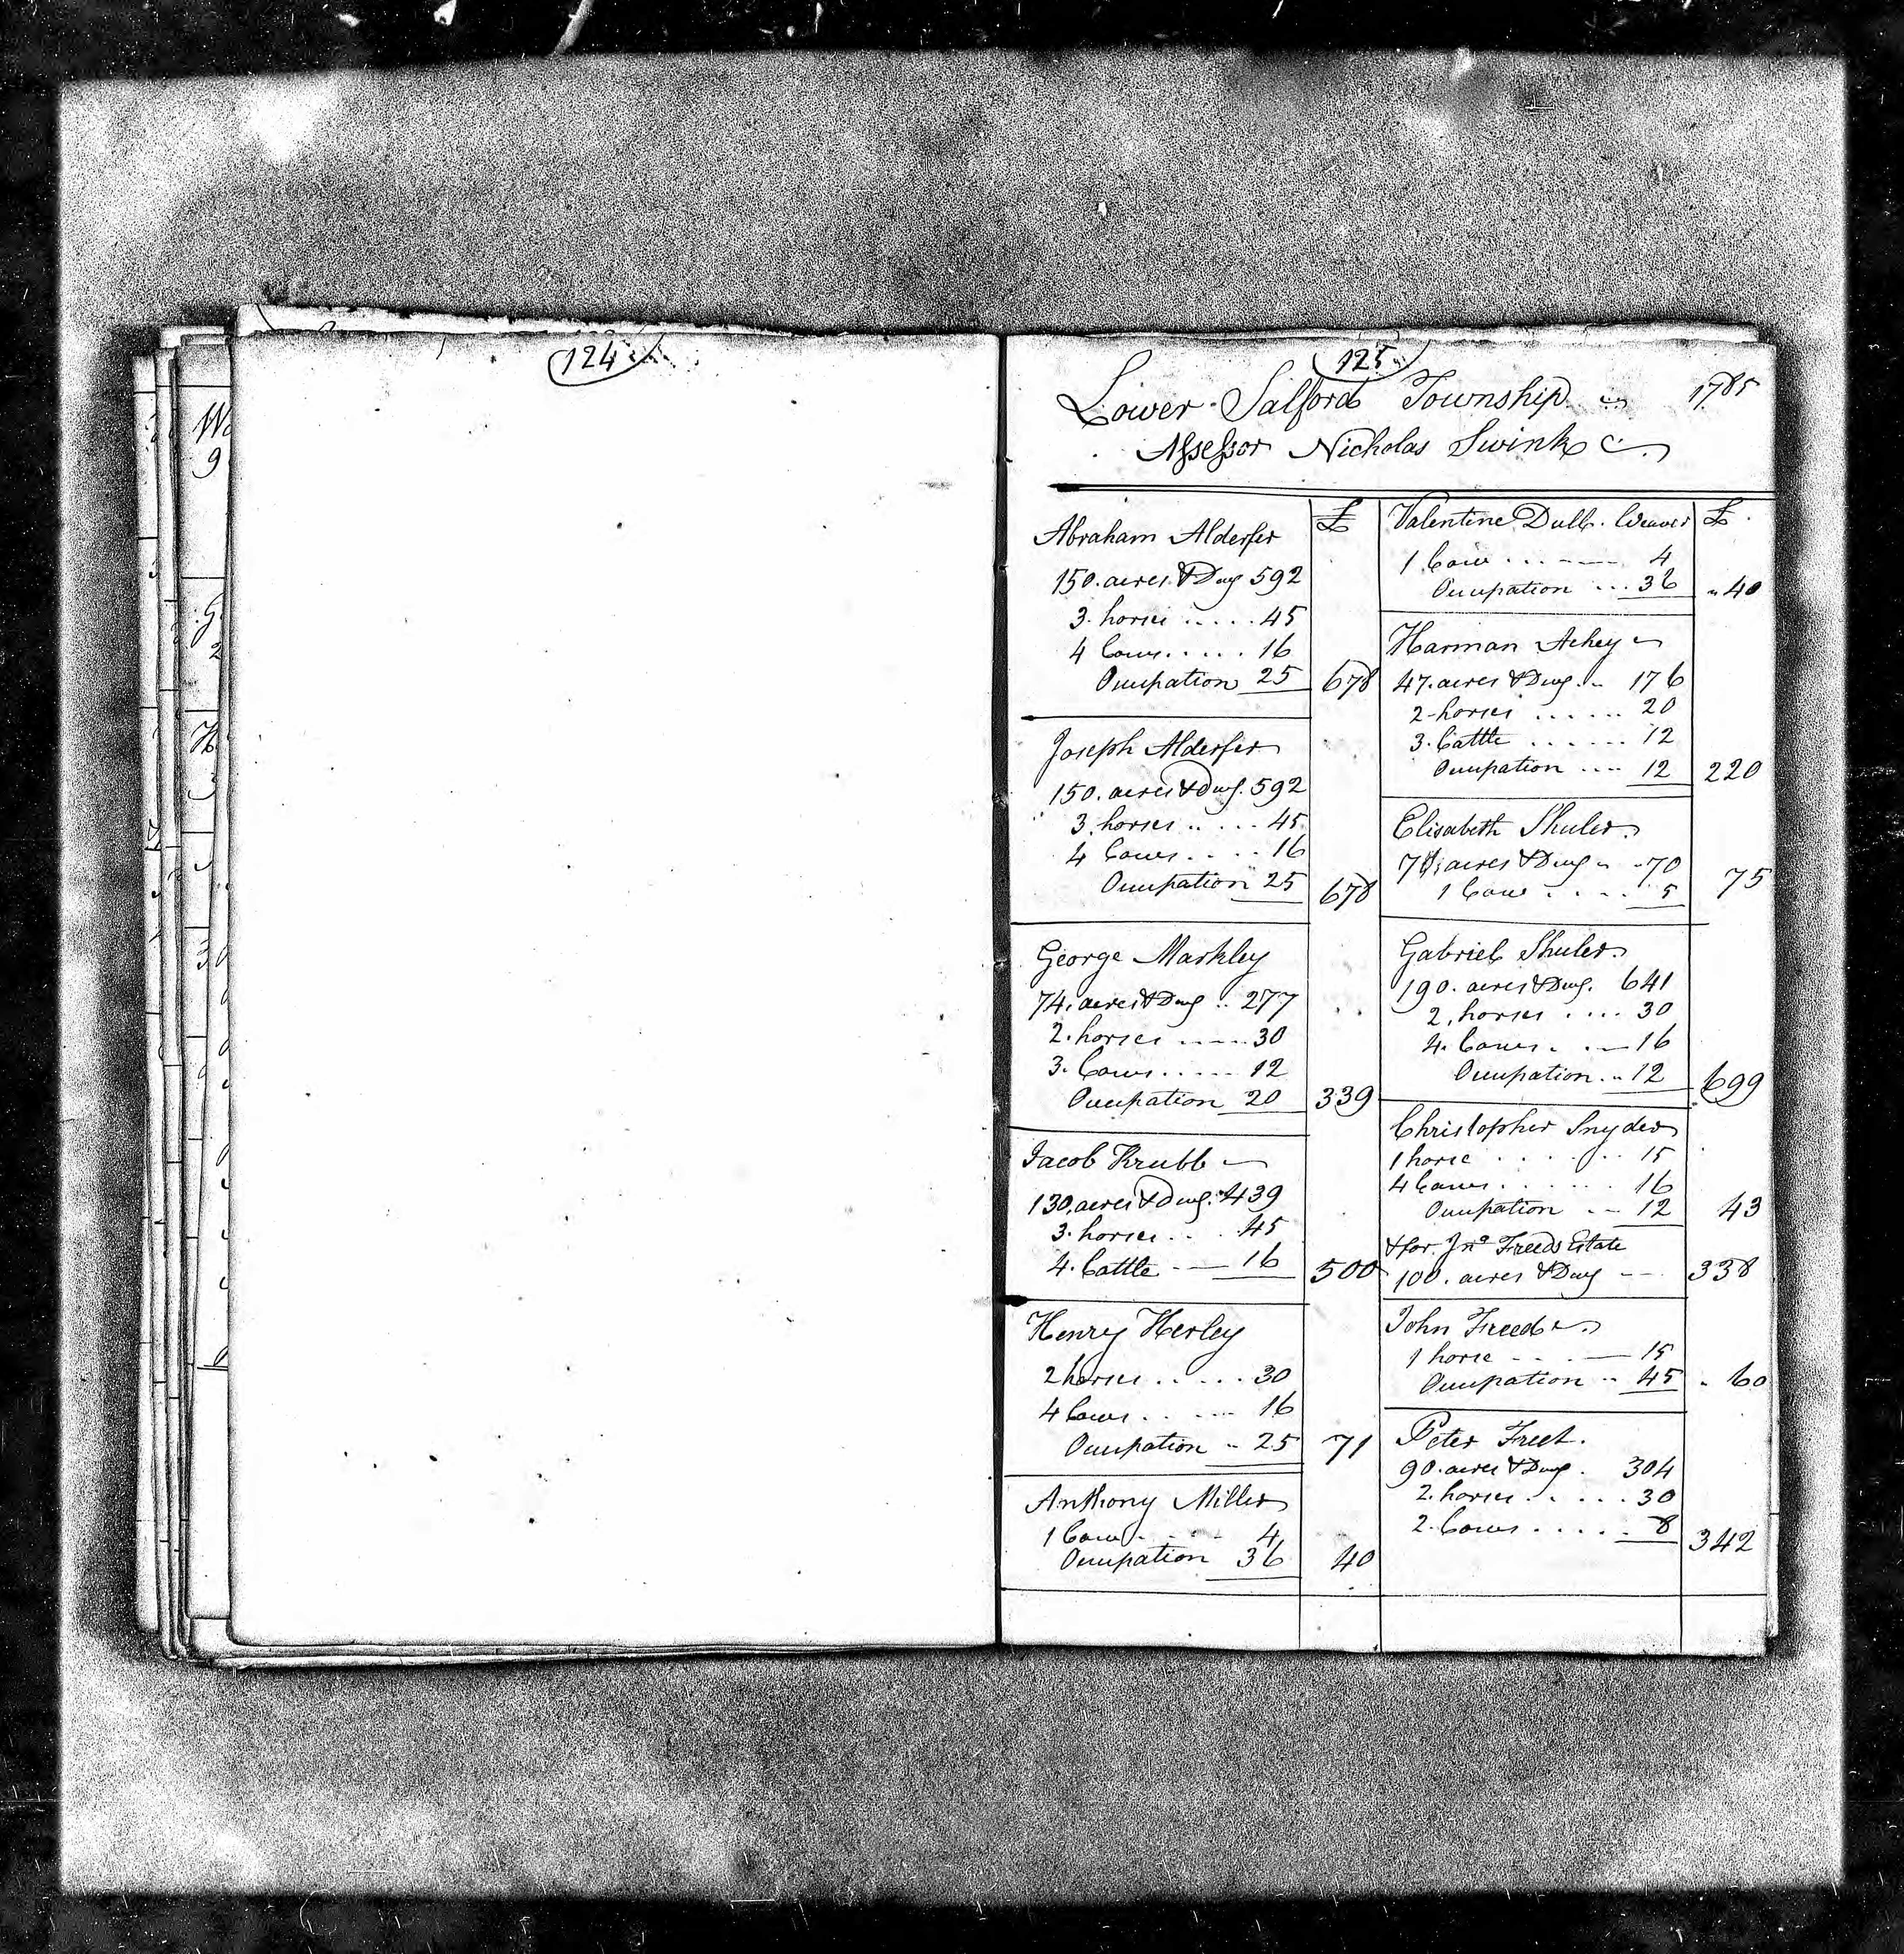 124
125
Lower Salford Township 1785
Assessor Nicholas Swink
£
Abraham Alderfer
150. acres & Dwg 592
3. horses ..... 45
4 Cows ..... 16
Occupation 25 678
Joseph Alderfer
150. acres & Dwg. 592
3. horses .. ... 45
4 Cows .... 16
Occupation 25 678
George Markley
74. acres & Dwg .. 277
2. horses ..... 30
3. Cows ..... 12
Occupation 20 339
Jacob Krubb
130. acres & Dwg. 439
3. horses ... 45
4. Cattle 16 500
Henry Herley
2 horses ..... 30
4 Cows ..... 16
Occupation .. 25 71
Anthony Miller
1 Cow .... 4
Occupation 36 40
Valentine Dull. Weaver £
1 Cow ... 4
Occupation ... 36 40
Harman Achey
47. acres & Dwg. 176
2 horses ...... 20
3. Cattle ...... 12
Occupation .... 12 220
Elisabeth Shuler
acres & Dwg 70
1 Cow .... 5 75
Gabriel Shuler
190. acres & Dwg. 641
2. horses .... 30
4. Cows . . 16
Occupation .. 12 699
Christopher Snyder
1 horse ..... 15
4 Cows ..... 16
Occupation 12 43
& for Jno Freeds Estate
100. acres & Dwg 338
John Freed
1 horse 15
Occupation .. 45 60
Peter Freet.
90. acres & Dwg. 304
2. horses ..... 30
2. Cows ..... 8 342